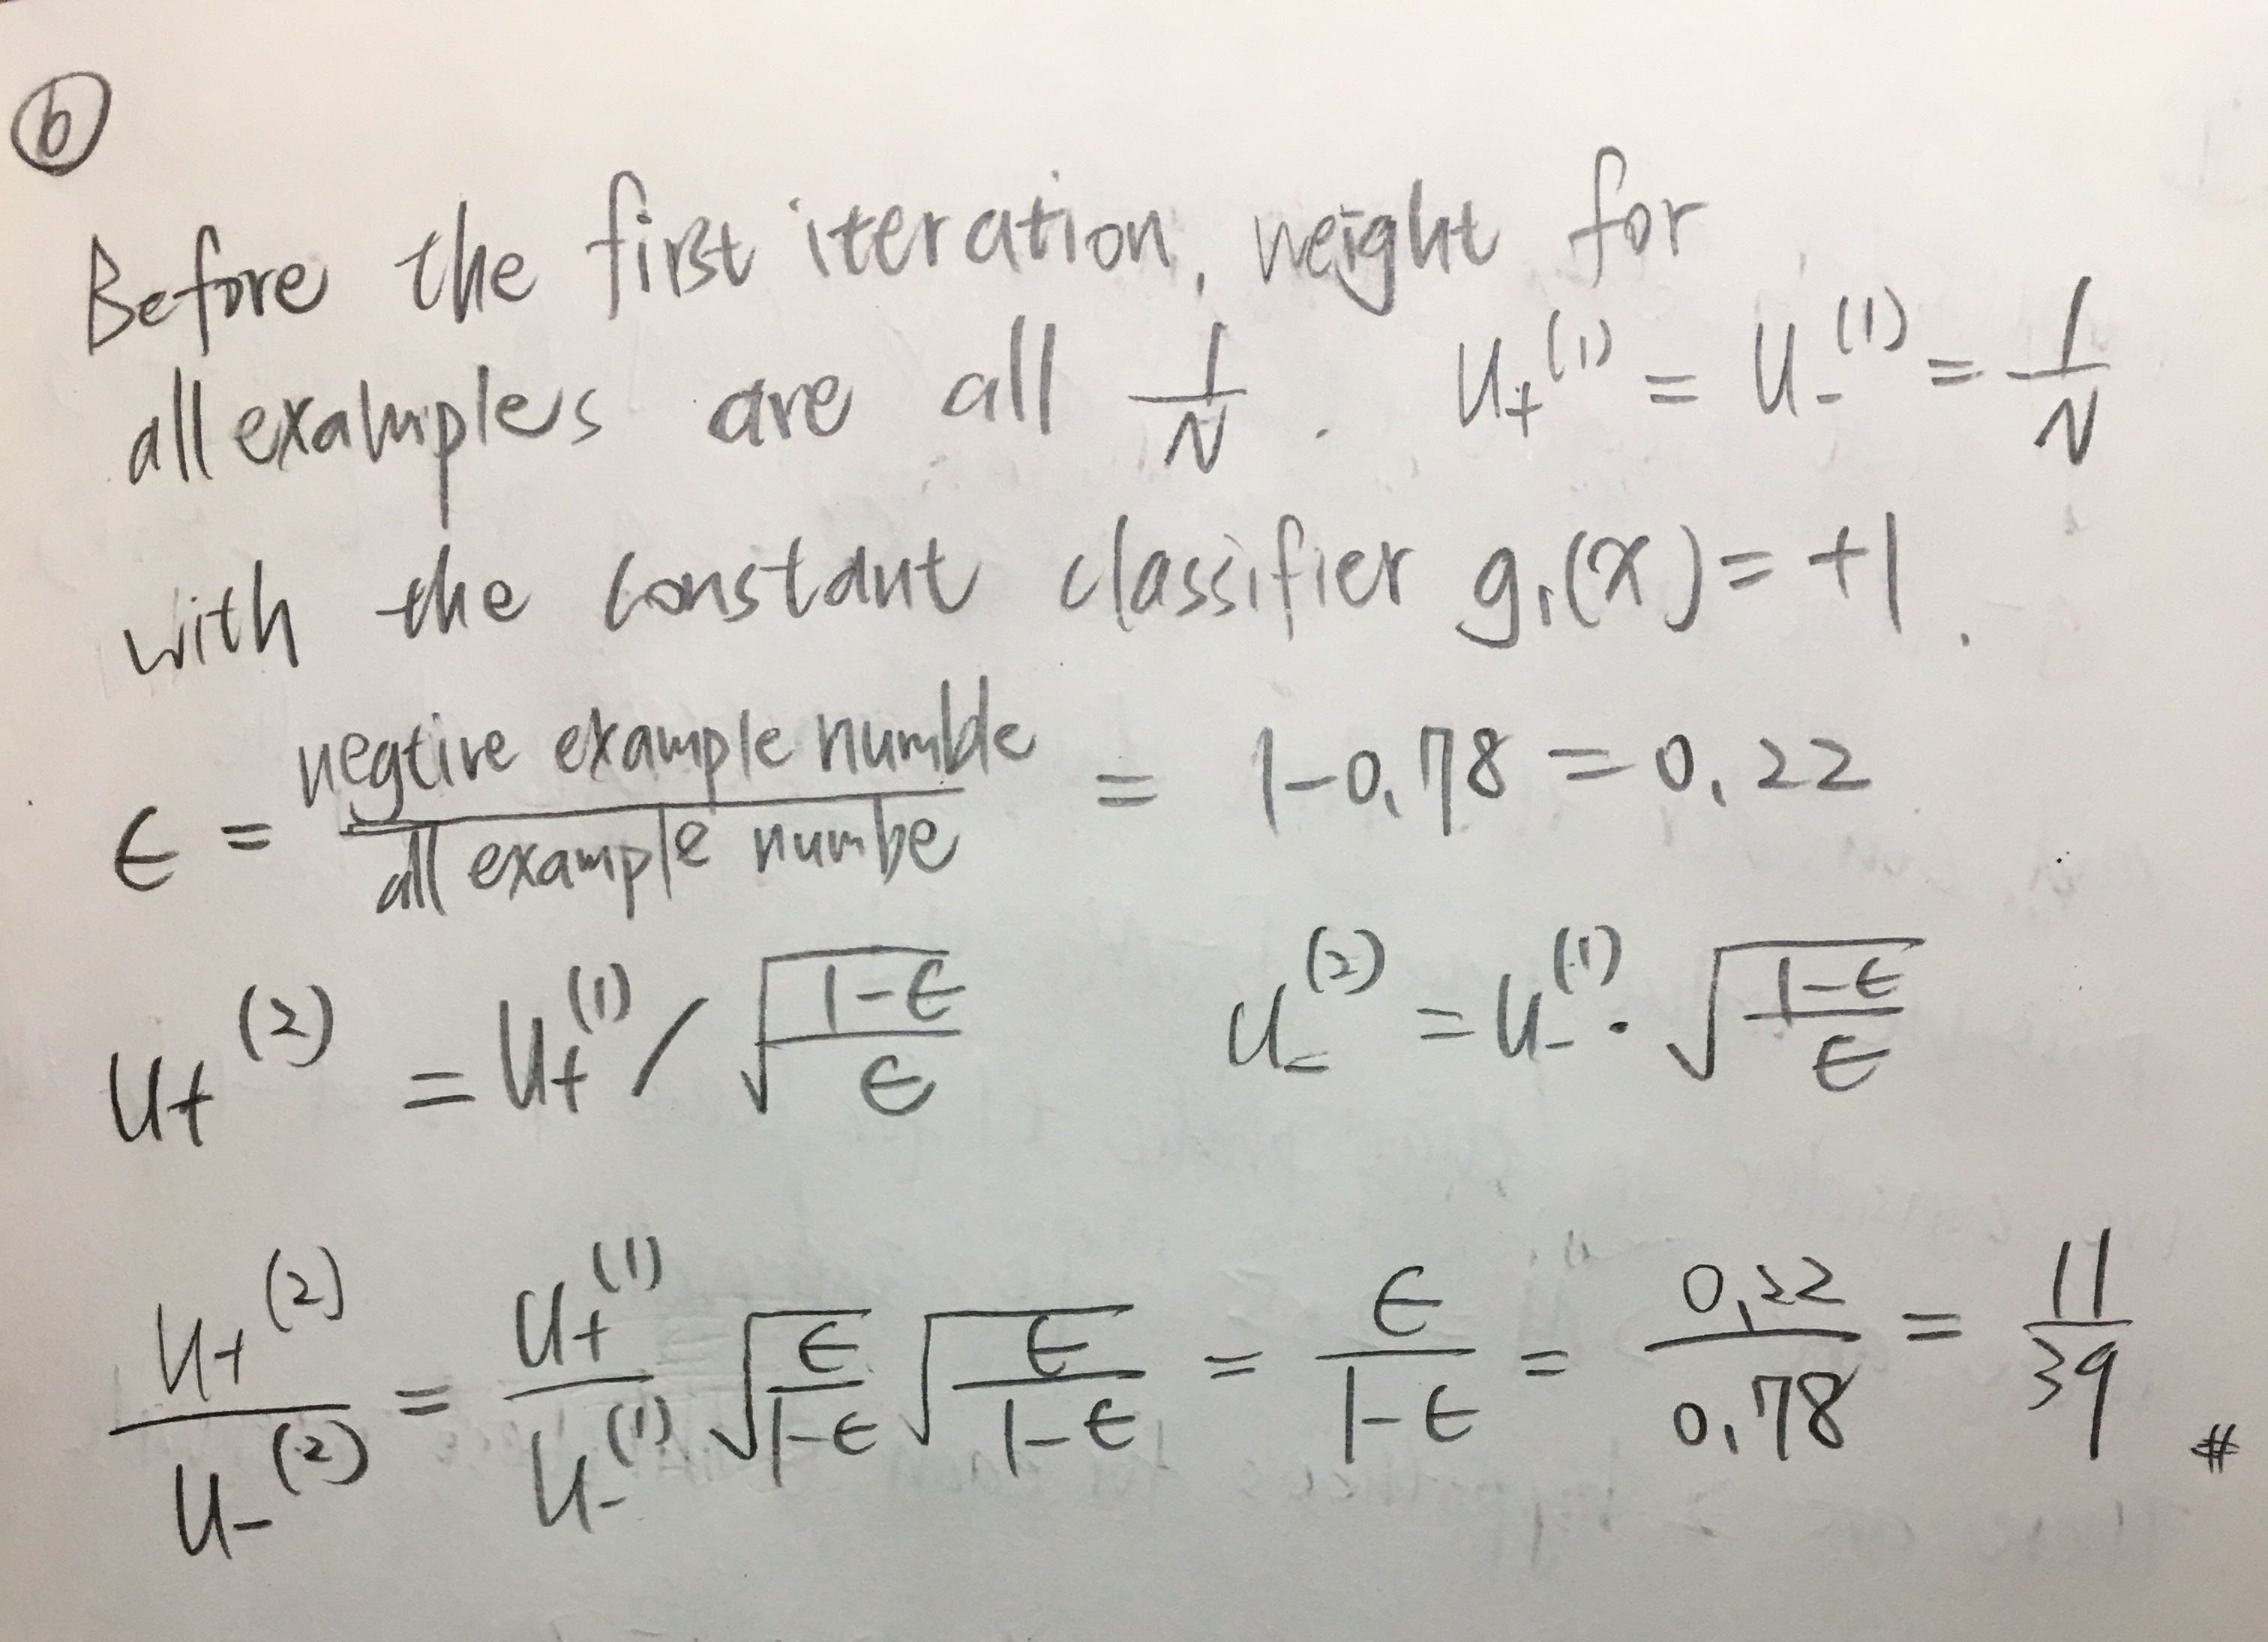 6
Before the first iteration, weight for
all examples are all 1/N . U₊⁽¹⁾ = U₋⁽¹⁾ = 1/N
with the constant classifier g₁(x) = +1 .
ϵ = negtive example numble / all example numbe = 1-0.78 = 0.22
U₊⁽²⁾ = U₊⁽¹⁾ / √((1-ϵ)/ϵ) U₋⁽²⁾ = U₋⁽¹⁾ · √((1-ϵ)/ϵ)
U₊⁽²⁾/U₋⁽²⁾ = U₊⁽¹⁾/U₋⁽¹⁾ √(ϵ/(1-ϵ)) √(ϵ/(1-ϵ)) = ϵ/(1-ϵ) = 0.22/0.78 = 11/39 #